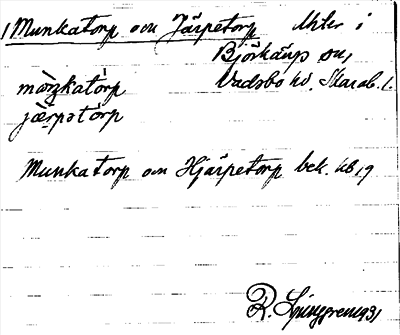 1 Munkatorp och Järpetorp Uhler i
Björkängs sn,
Vadsbo hd. Skarab. l.
màŋkatòrp
jæ̀rpetòrp
Munkatorp och Hjärpetorp bek. kb, 9
R. Ljunggren 1931